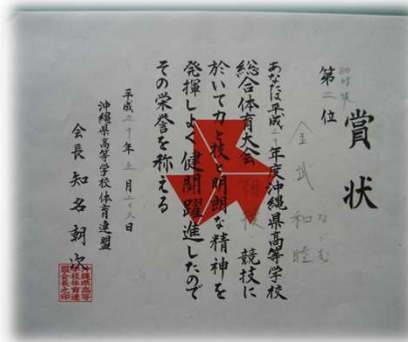 賞状
第二位
金武和睦
あなたは平成二十年度沖縄県高等学校
総合体育大会 相撲 競技に
於いて力と技と明朗な精神を
発揮しよく健闘躍進したので
その栄誉を称える
平成二十年五月二十五日
沖縄県高等学校体育連盟
会長 知名朝次
沖縄県高等
学校体育連
盟会長之印